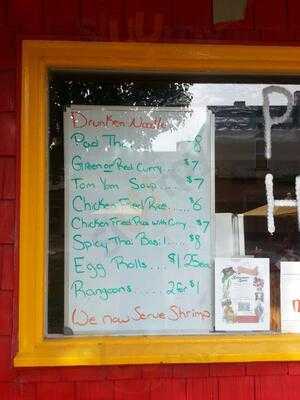 Drunken Noodle
Pad Thai 8
Green or Red Curry . . $7
Tom Yom Soup . . . . $7
Chicken Fried Rice . . $6
Chicken Fried Rice with Curry . . $7
Spicy Thai Basil . . . $8
Egg Rolls . . . . $1.25ea
Rangoons . . . . . . 2 for $1
We now Serve Shrimp
P
H